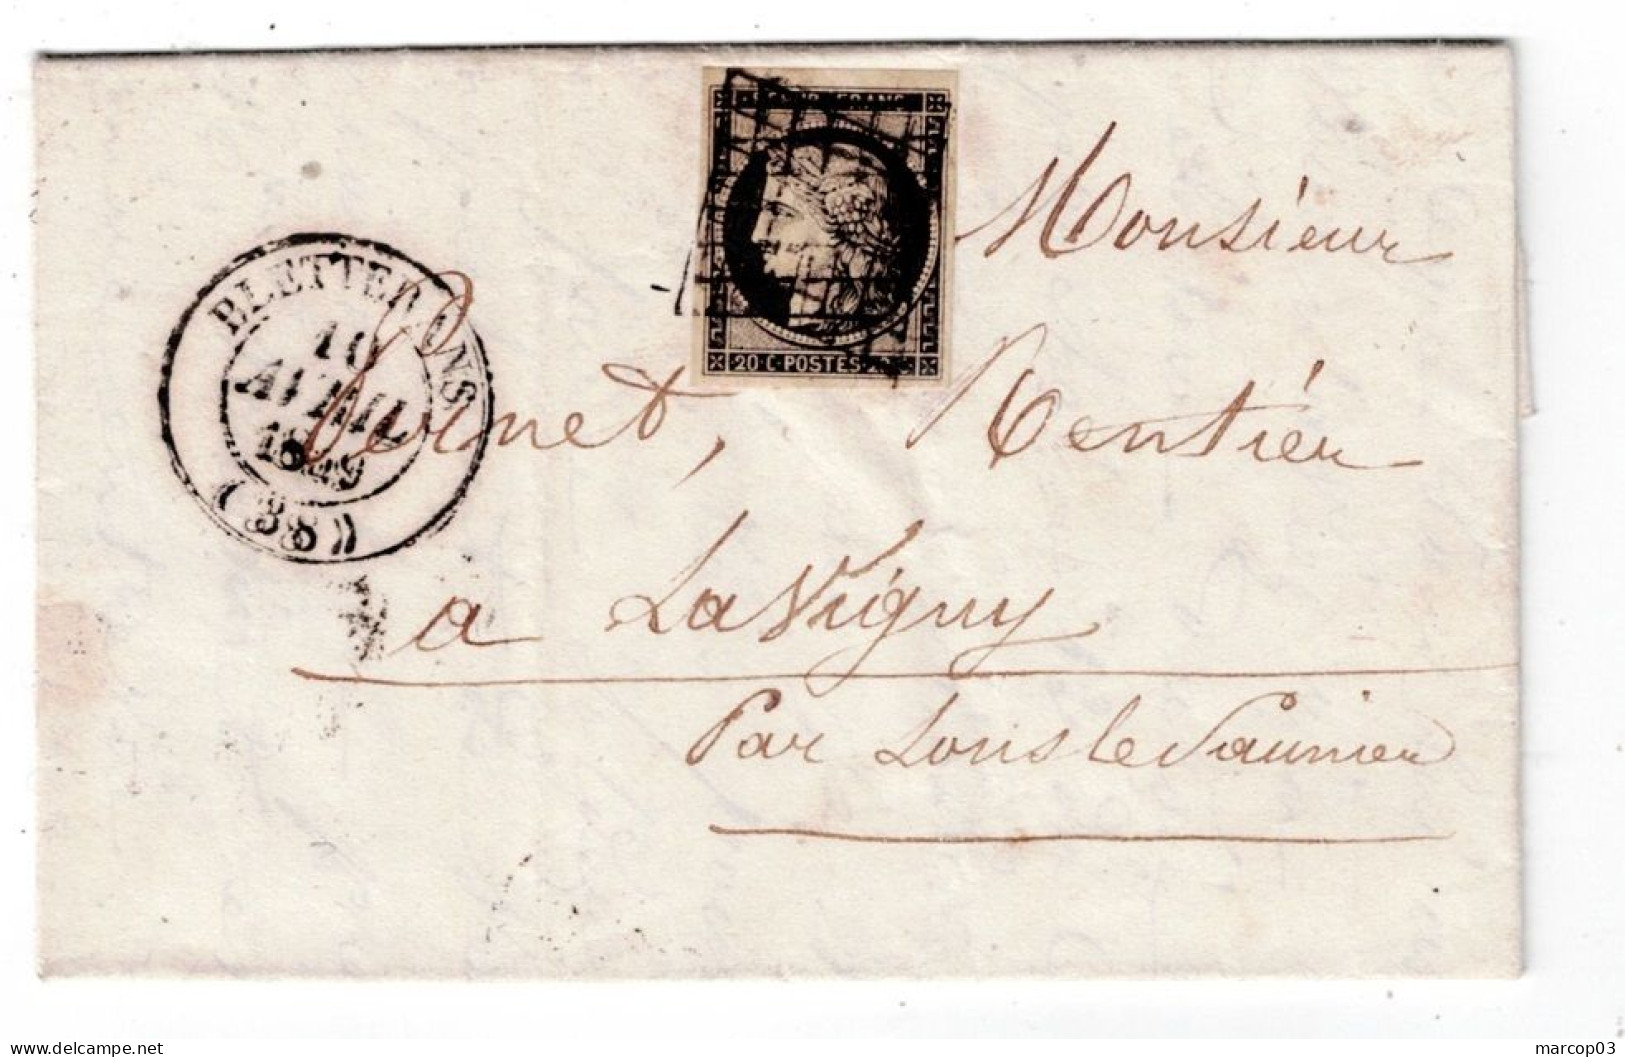 BLETTERANS
10
AVRIL
1849
(38)
20·C·POSTES·20·C
Monsieur
Vernet, Rentier
a LaVigny
Par Lons le Saunier
www.delcampe.net
marcop03